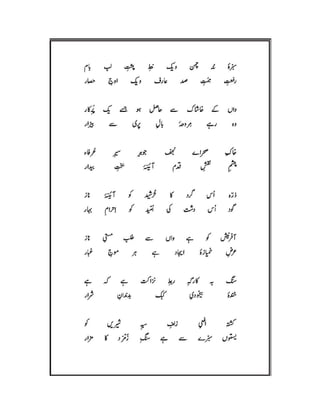 سبزۂ نہ چمن و یک خطِ پشتِ لبِ بام
رفعتِ ہمتِ صد عارف و یک اوجِ حصار
واں کے خاشاک سے حاصل ہو جسے یک پرِ کاہ
وہ رہے مروحۂ بالِ پری سے بیزار
خاکِ صحرائے نجف جوہرِ سیرِ عُرفاء
چشمِ نقشِ قدم آئینۂ بختِ بیدار
ذرّہ اُس گرد کا خُرشید کو آئینۂ ناز
گرد اُس دشت کی امّید کو احرامِ بہار
آفرینش کو ہے واں سے طلبِ مستیِ ناز
عرضِ خمیازۂ ایجاد ہے ہر موجِ غبار
سنگ یہ کارگہِ ربطِ نزاکت ہے کہ ہے
خندۂ بیخودیِ کبک بدندانِ شرار
کشتۂ افعیِ زلفِ سیہِ شیریں کو
بیستوں سبزے سے ہے سنگِ زمرّد کا مزار